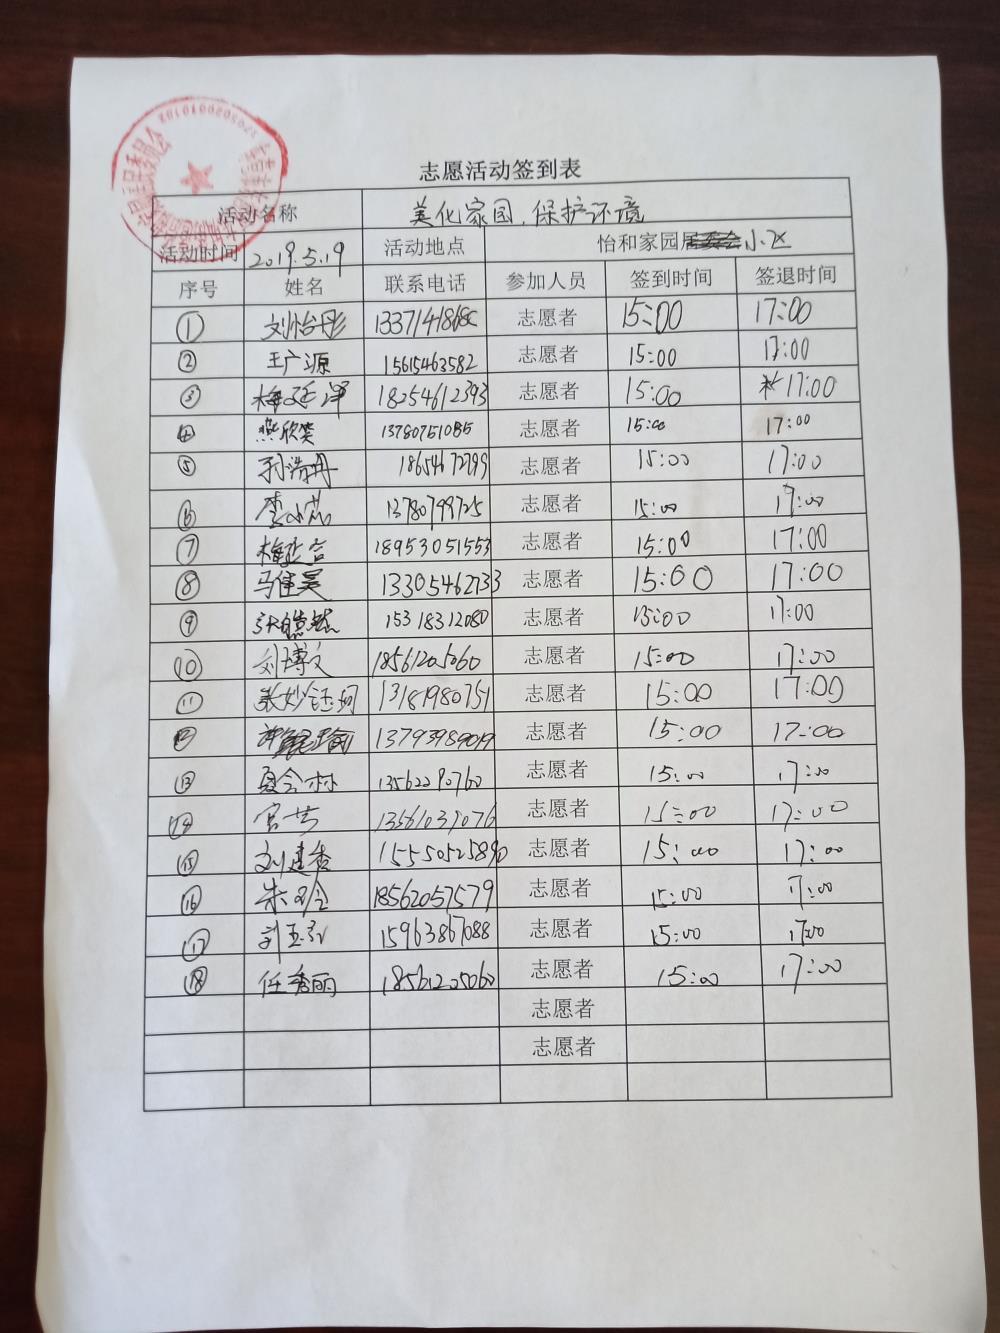 志愿活动签到表
活动名称 美化家园,保护环境
活动时间 2019.5.19 活动地点 怡和家园居委会小区
序号 姓名 联系电话 参加人员 签到时间 签退时间
① 刘怡彤 志愿者 15:00 17:00
② 王广源 15615463582 志愿者 15:00 17:00
③ 梅廷泽 18254612393 志愿者 15:00 17:00
④ 燕欣笑 13780751085 志愿者 15:00 17:00
⑤ 孙浩冉 18654672799 志愿者 15:00 17:00
⑥ 李 13780799725 志愿者 15:00 17:00
⑦ 梅 18953051553 志愿者 15:00 17:00
⑧ 马佳昊 13305462733 志愿者 15:00 17:00
⑨ 张 15318312080 志愿者 15:00 17:00
⑩ 刘博文 18561205060 志愿者 15:00 17:00
⑪ 张妙钰珂 13181980751 志愿者 15:00 17:00
⑫ 志愿者 15:00 17:00
⑬ 13562290760 志愿者 15:00 17:00
⑭ 宫芳 13561039076 志愿者 15:00 17:00
⑮ 刘建香 志愿者 15:00 17:00
⑯ 朱 18562057579 志愿者 15:00 17:00
⑰ 刘玉 15963867088 志愿者 15:00 17:00
⑱ 任秀丽 18561205060 志愿者 15:00 17:00
志愿者
志愿者